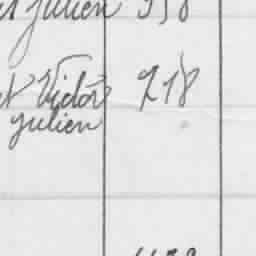 et Julien 558
et Victor 218
Julien